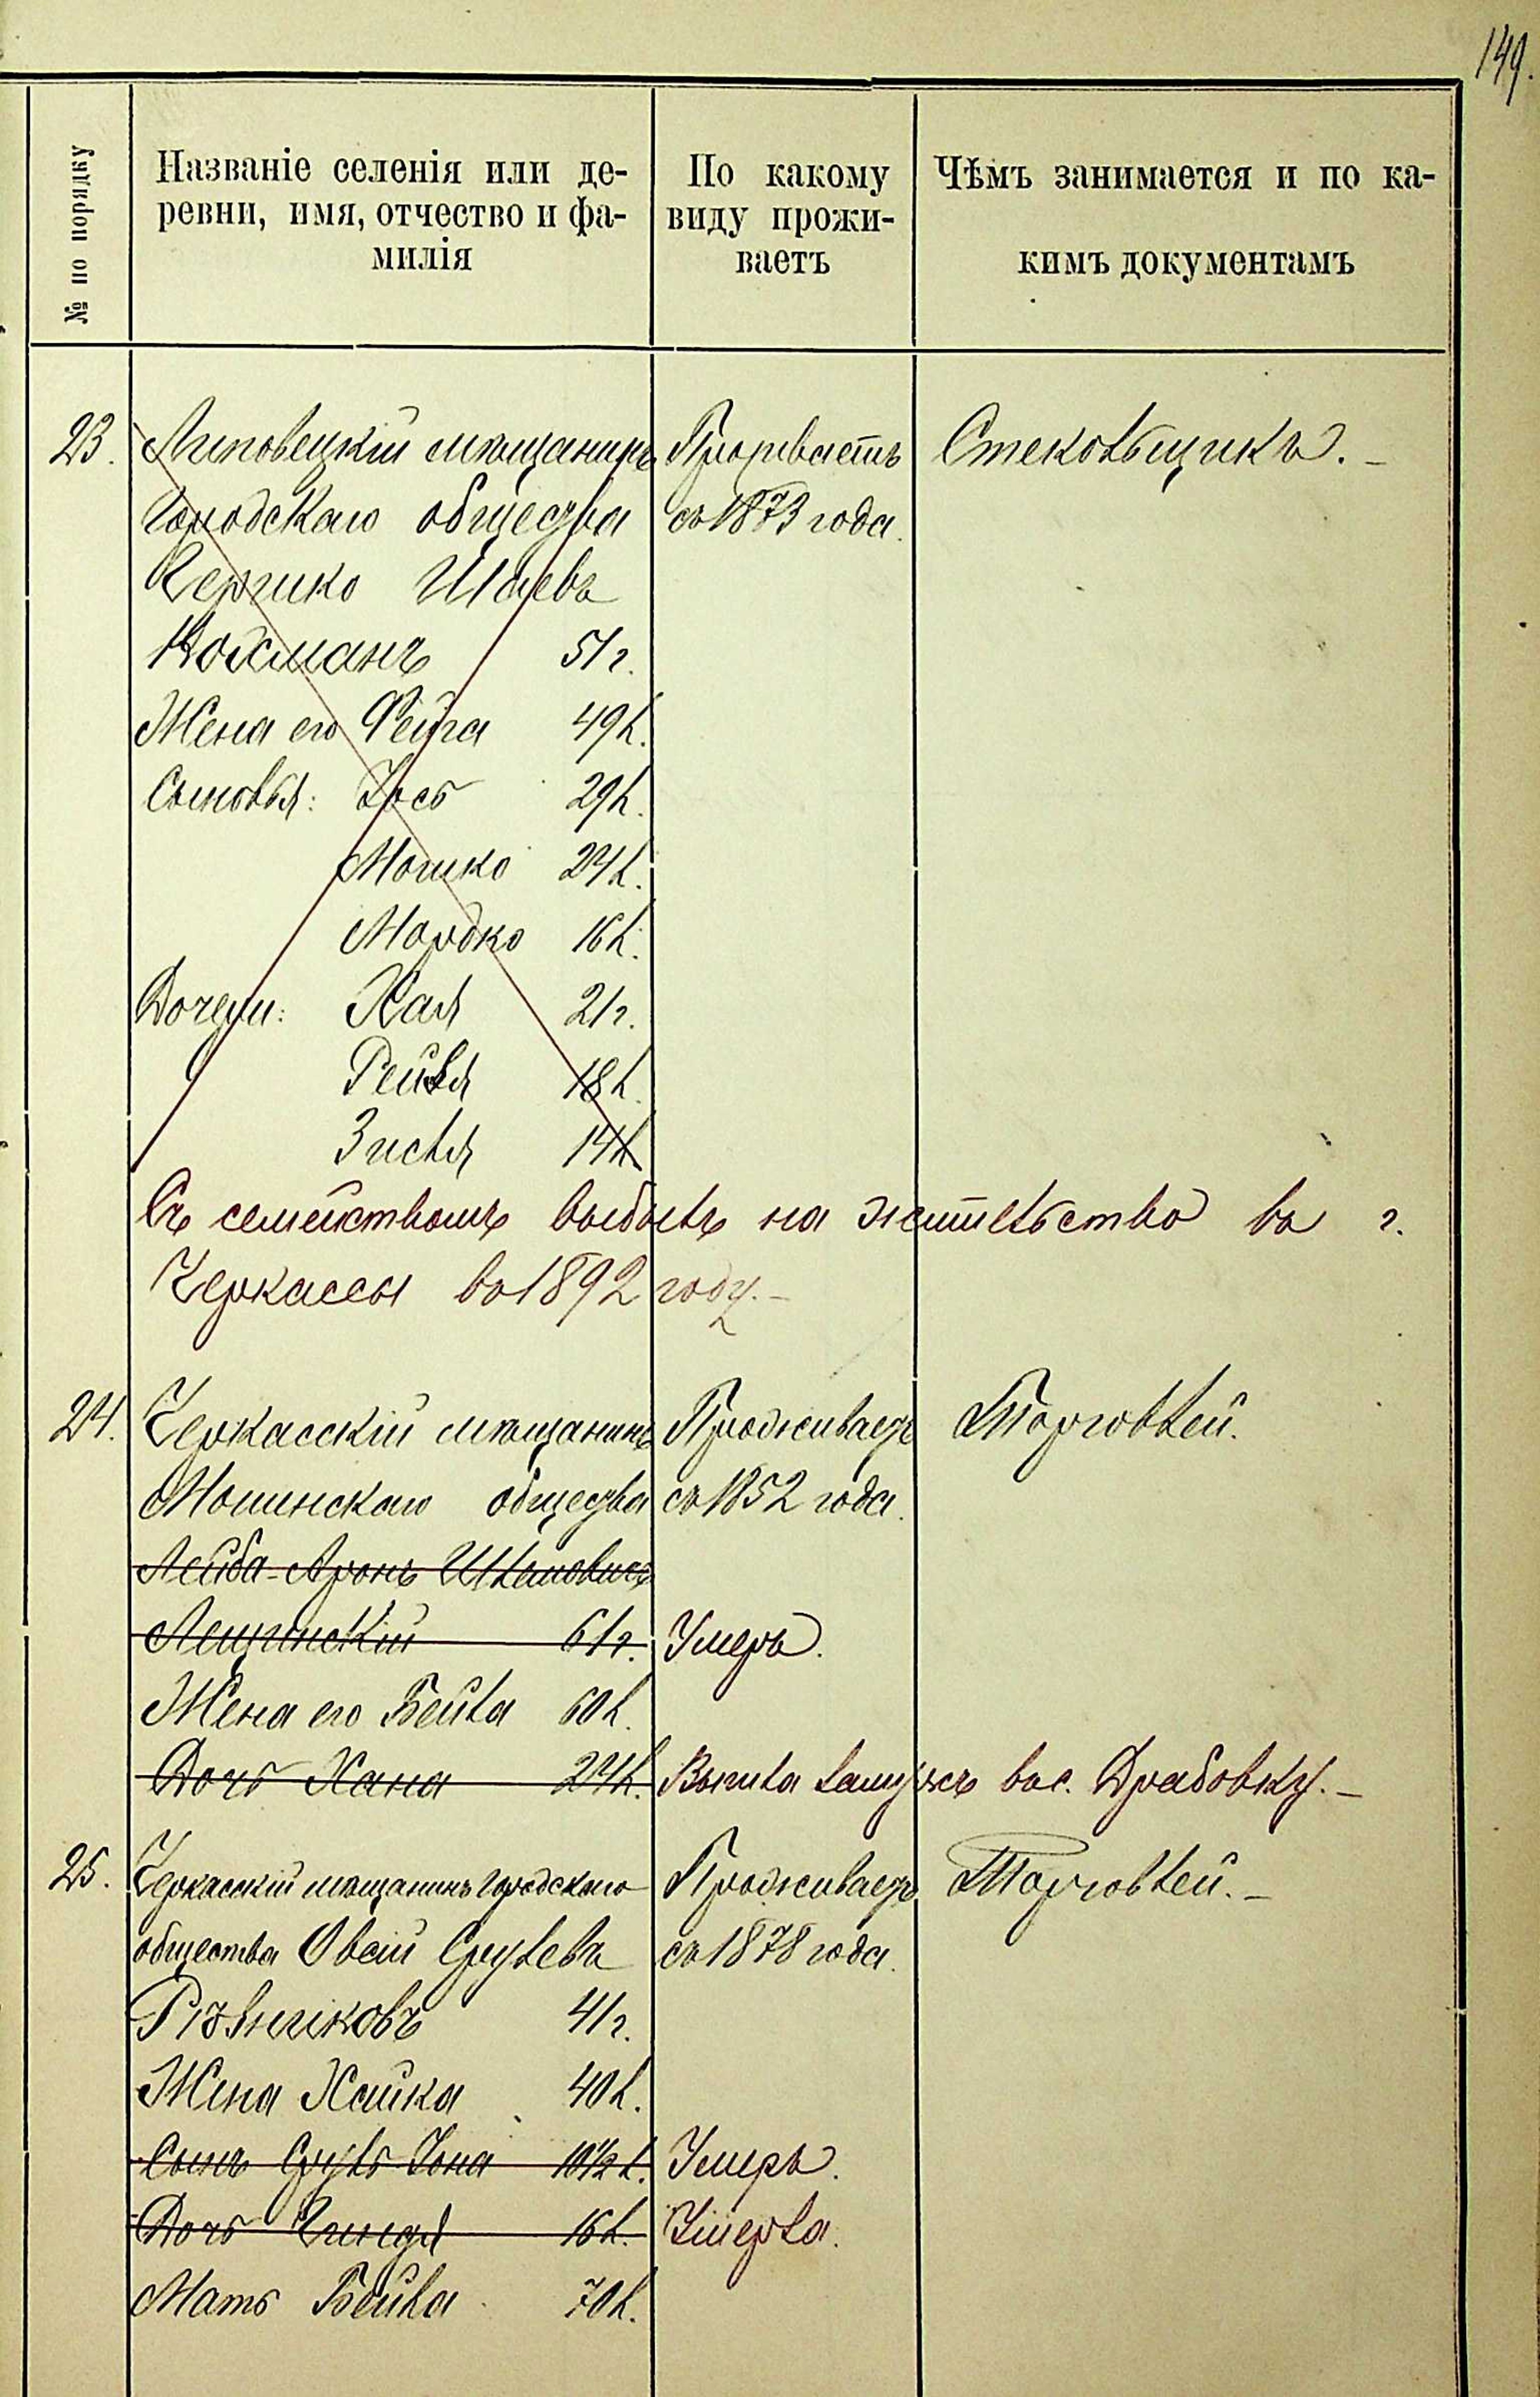 149.
№ по порядку
Названіе селенія или де-
ревни, имя, отчество и фа-
милія
По какому
виду прожи-
ваетъ
Чѣмъ занимается и по ка-
кимъ документамъ
23. Липовецкій мѣщанинъ Проживаетъ Стекольщикъ. –
Городскаго общества съ 1873 года.
Хершко Шаевъ
Койсманъ 51 г.
Жена его Фейга 49 л.
Сыновья: Іось 29 л.
Мошко 24 л.
Мордко 16 л.
Дочери: Хая 21 г.
Рейзя 18 л.
Зисля 14 л.
Съ семействомъ выбылъ на жительство въ г.
Черкассы въ 1892 году. –
24. Черкасскій мѣщанинъ Проживаетъ Торговлей.
Мошнскаго общества съ 1852 года.
Лейба-Аронъ Шлемовичъ
Лещинскій 61 г. Умеръ.
Жена его Бейла 60 л.
Дочь Хана 24 л. Вышла замужъ въ с. Драбовку. –
25. Черкасскій мѣщанинъ Городскаго Проживаетъ Торговлей. –
общества Овсій Срулевъ съ 1878 года.
Рѣзниковъ 41 г.
Жена Хайка 40 л.
Сынъ Сруль-Іона 10½ л. Умеръ.
Дочь 16 л. Умерла.
Мать Бейла 70 л.